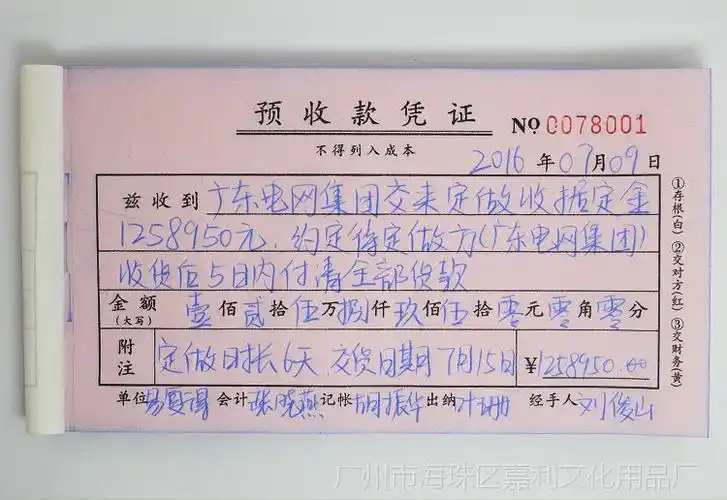 预收款凭证 NO 0078001
不得列入成本
2016年07月09日
兹收到广东电网集团交来定做收据定金
1258950元，约定待定做方(广东电网集团)
收货后5日内付清全部货款
金额(大写) 壹佰贰拾伍万捌仟玖佰伍拾零元零角零分
附注 定做时长6天 交货日期7月15日 ¥1258950.00
单位 会计 张晓燕 记帐 胡振华 出纳 叶珊 经手人 刘俊山
①存根(白) ②交对方(红) ③交财务(黄)
广州市海珠区嘉利文化用品厂